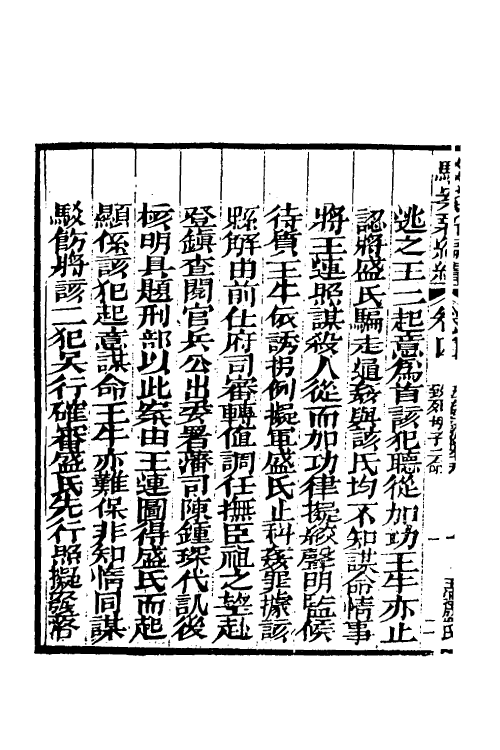 逃之王二起意為首該犯聽從加功王牛亦止
認將盛氏騙走通姦與該氏均不知謀命情事
將王蓮照謀殺人從而加功律擬絞聲明監候
待質王牛依誘拐例擬軍盛氏止科姦罪據該
縣解由前任府司審轉值調任撫臣祖之望赴
登鎮查閱官兵公出委署藩司陳鍾琛代訊後
核明具題刑部以此案由王蓮圖得盛氏而起
顯係該犯起意謀命王牛亦難保非知情同謀
駁飭將該二犯另行確審盛氏先行照擬發落